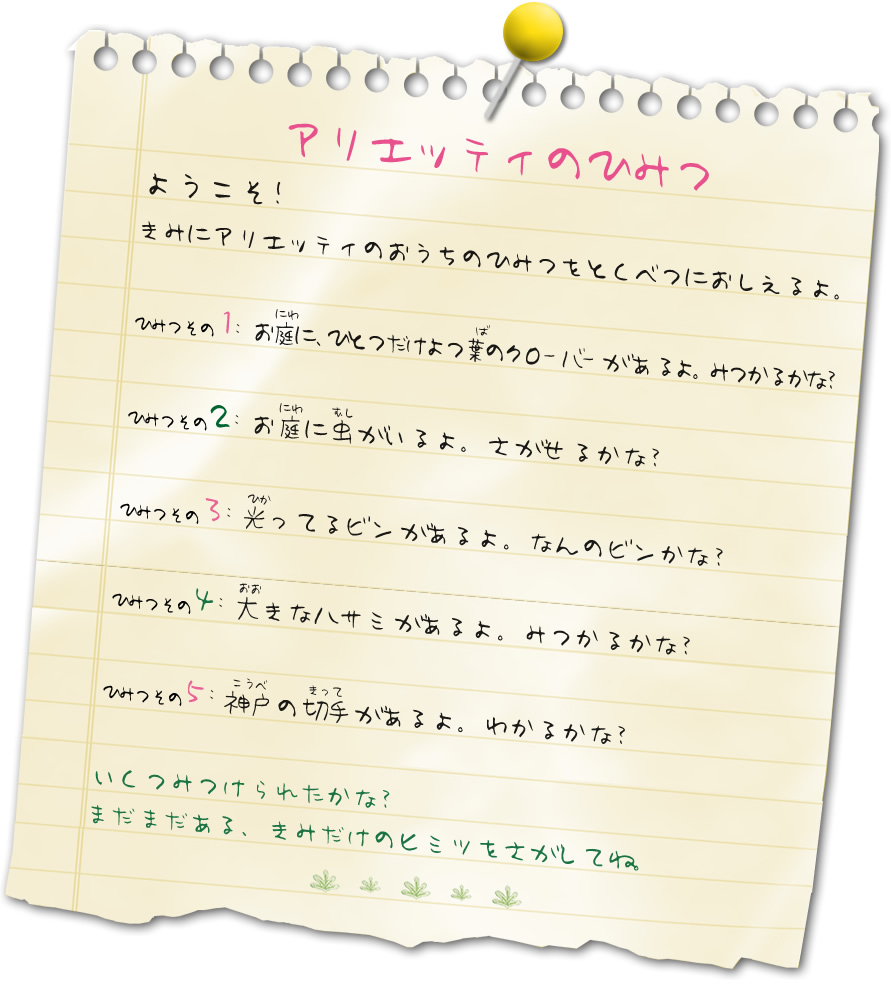 アリエッティのひみつ
ようこそ!
きみにアリエッティのおうちのひみつをとくべつにおしえるよ。
にわ ば
ひみつその1: お庭に、ひとつだけよつ葉のクローバーがあるよ。みつかるかな?
にわ むし
ひみつその2: お庭に虫がいるよ。さがせるかな?
ひか
ひみつその3: 光ってるビンがあるよ。なんのビンかな?
おお
ひみつその4: 大きなハサミがあるよ。みつかるかな?
こうべ きって
ひみつその5: 神戸の切手があるよ。わかるかな?
いくつみつけられたかな?
まだまだある、きみだけのヒミツをさがしてね。